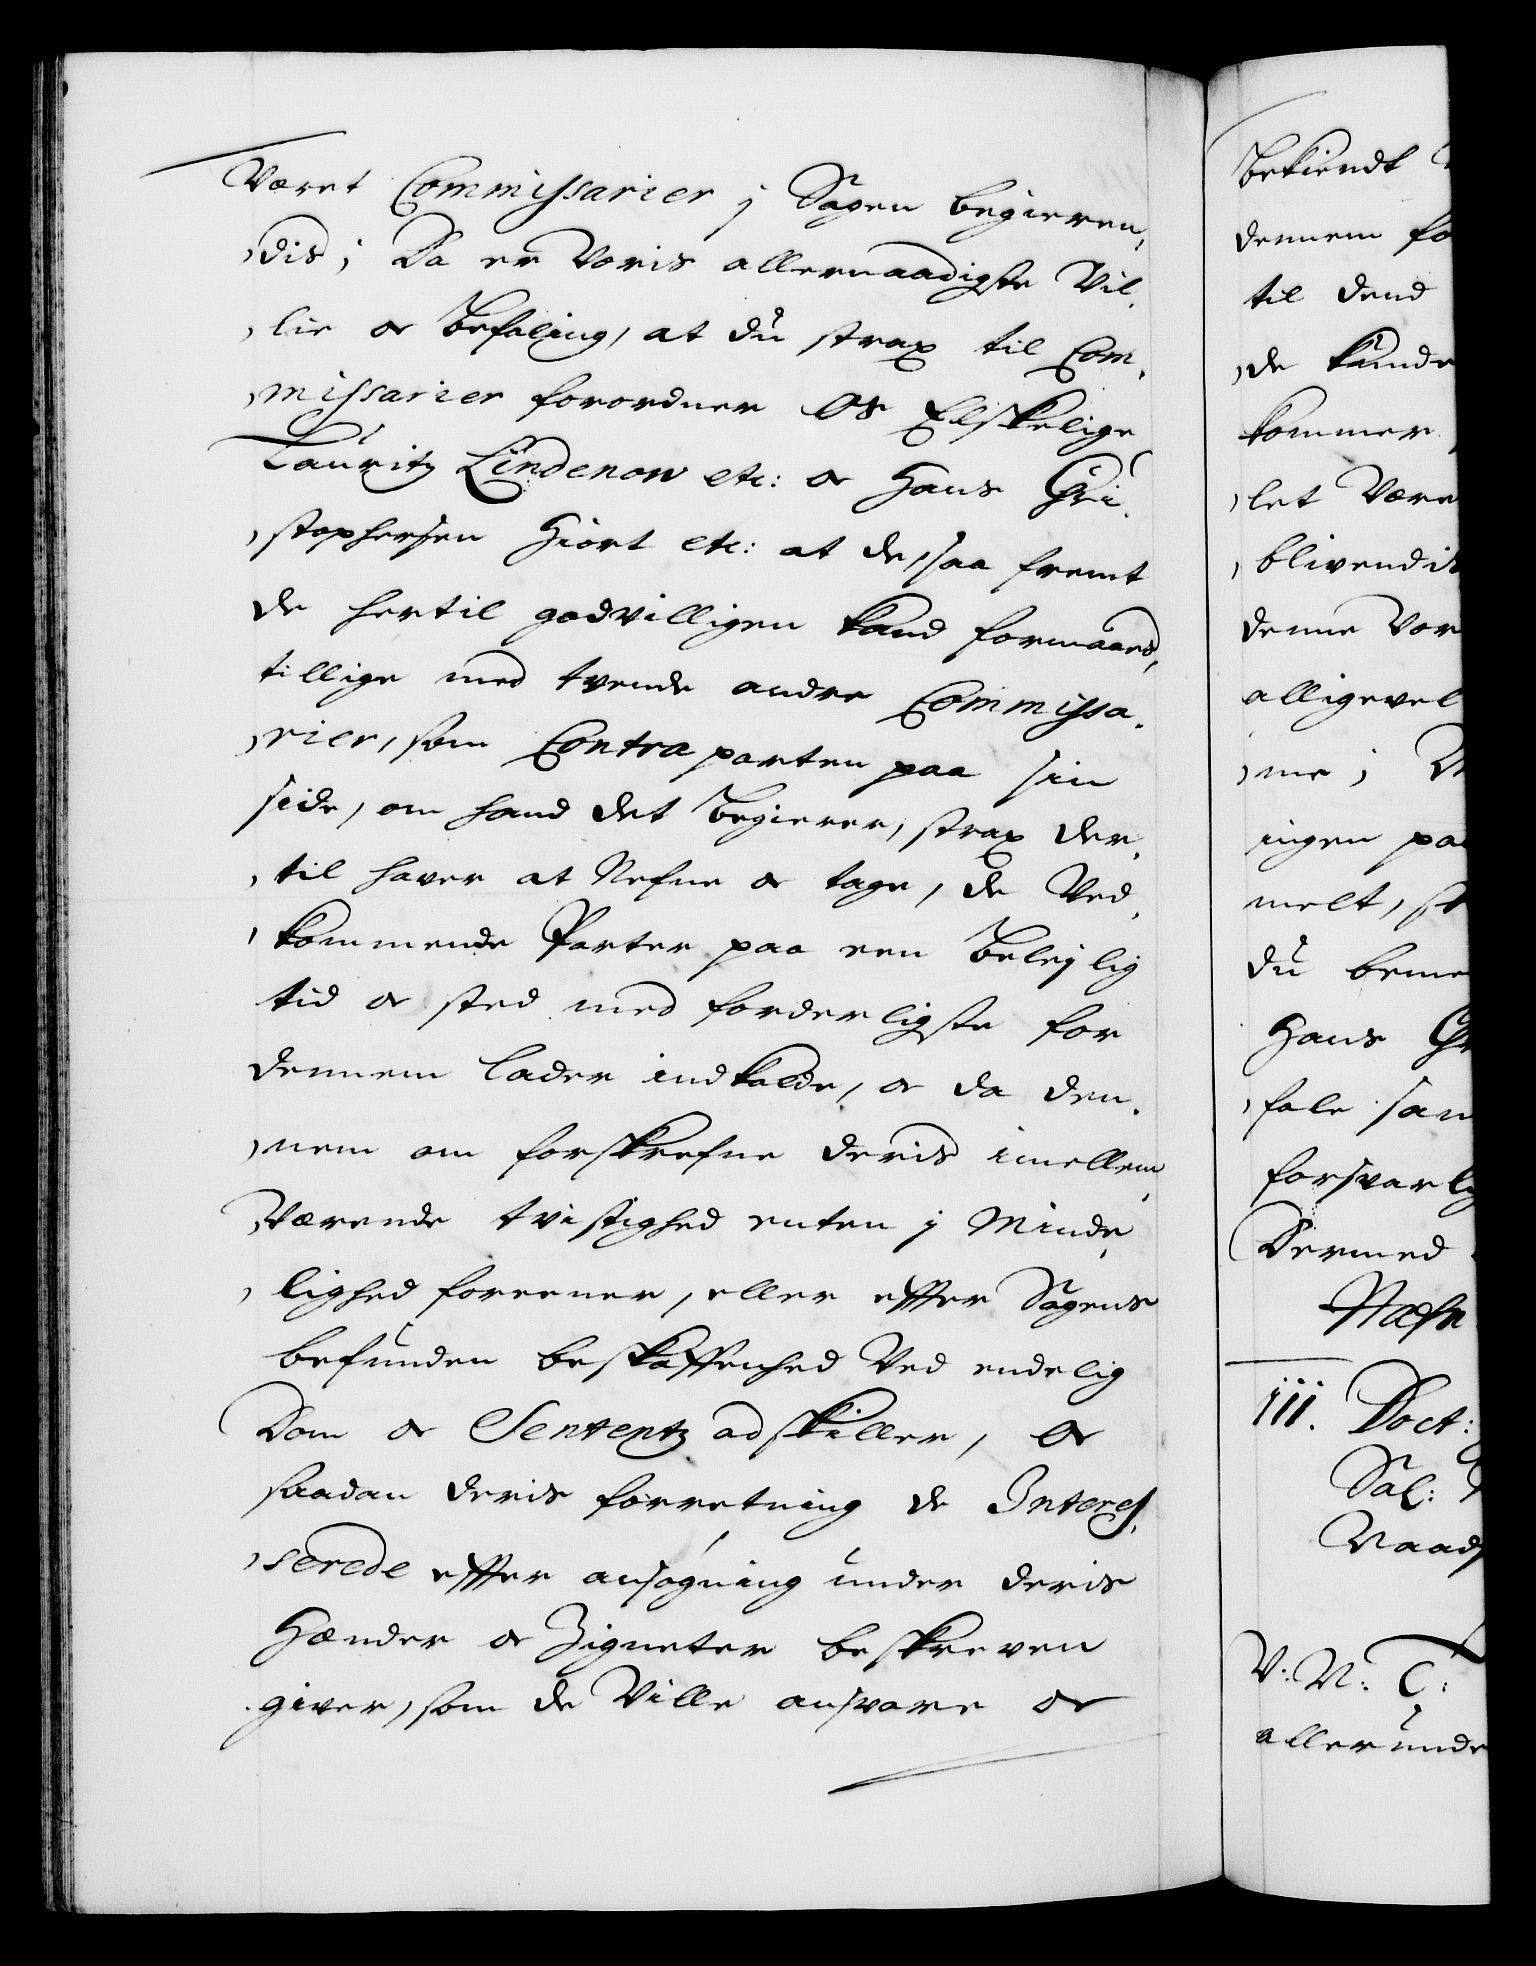 Været Commissarier j Sagen begieren,
,dis; Da er Voris allernaadigste Vil,
,lie og Befaling, at du strax til Com,
,missarier forordner Os Elskelige
Lauritz Lindenow etc: og Hans Chri,
,stophersen Hiort etc: at de, saa fremt
de hertil godvilligen kand formaaes,
tillige med tvende andre Commissa,
,rier, som Contraparten paa sin
side, om hand det begierer, strax der,
,til haver at Nefne og tage, de Ved,
,kommende Parter paa een Belejlig
tid og sted med forderligste for
dennem lader indkalde, og da den,
,nem om forskrefne deris imellem,
Værende tvistighed enten j Minde,
,lighed foreener, eller efter Sagens
befunden beskaffenhed Ved endelig
Dom og Sententz adskiller, Og
saadan deris forretning de Interes,
,serede efter ansøgning under deris
Hænder og Zigneter beskreven
giver, som de Ville ansvare og
Bekiendt
dennem fo
til dend
,de kunde
kommer
,let Være
,blivendis
denne Vor
alligevel
,me; 
ingen paa
melt, 
du beme
Hans Chr
,fale sam
forsvarlig
Dermed
111. Doct:
Sal:
V: N: T:
allerunde